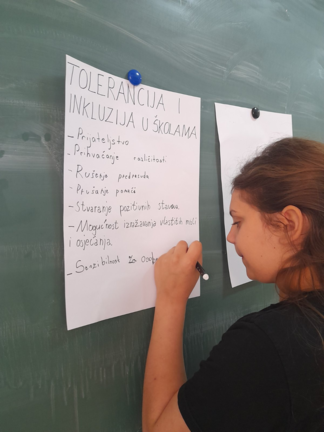 TOLERANCIJA I
INKLUZIJA U ŠKOLAMA
- Prijateljstvo
- Prihvaćanje različitosti
- Rušenje predrasuda
- Pružanje pomoći
- Stvaranje pozitivnih stavova
- Mogućnost izražavanja vlastitih misli
i osjećanja
- Senzibilnost za